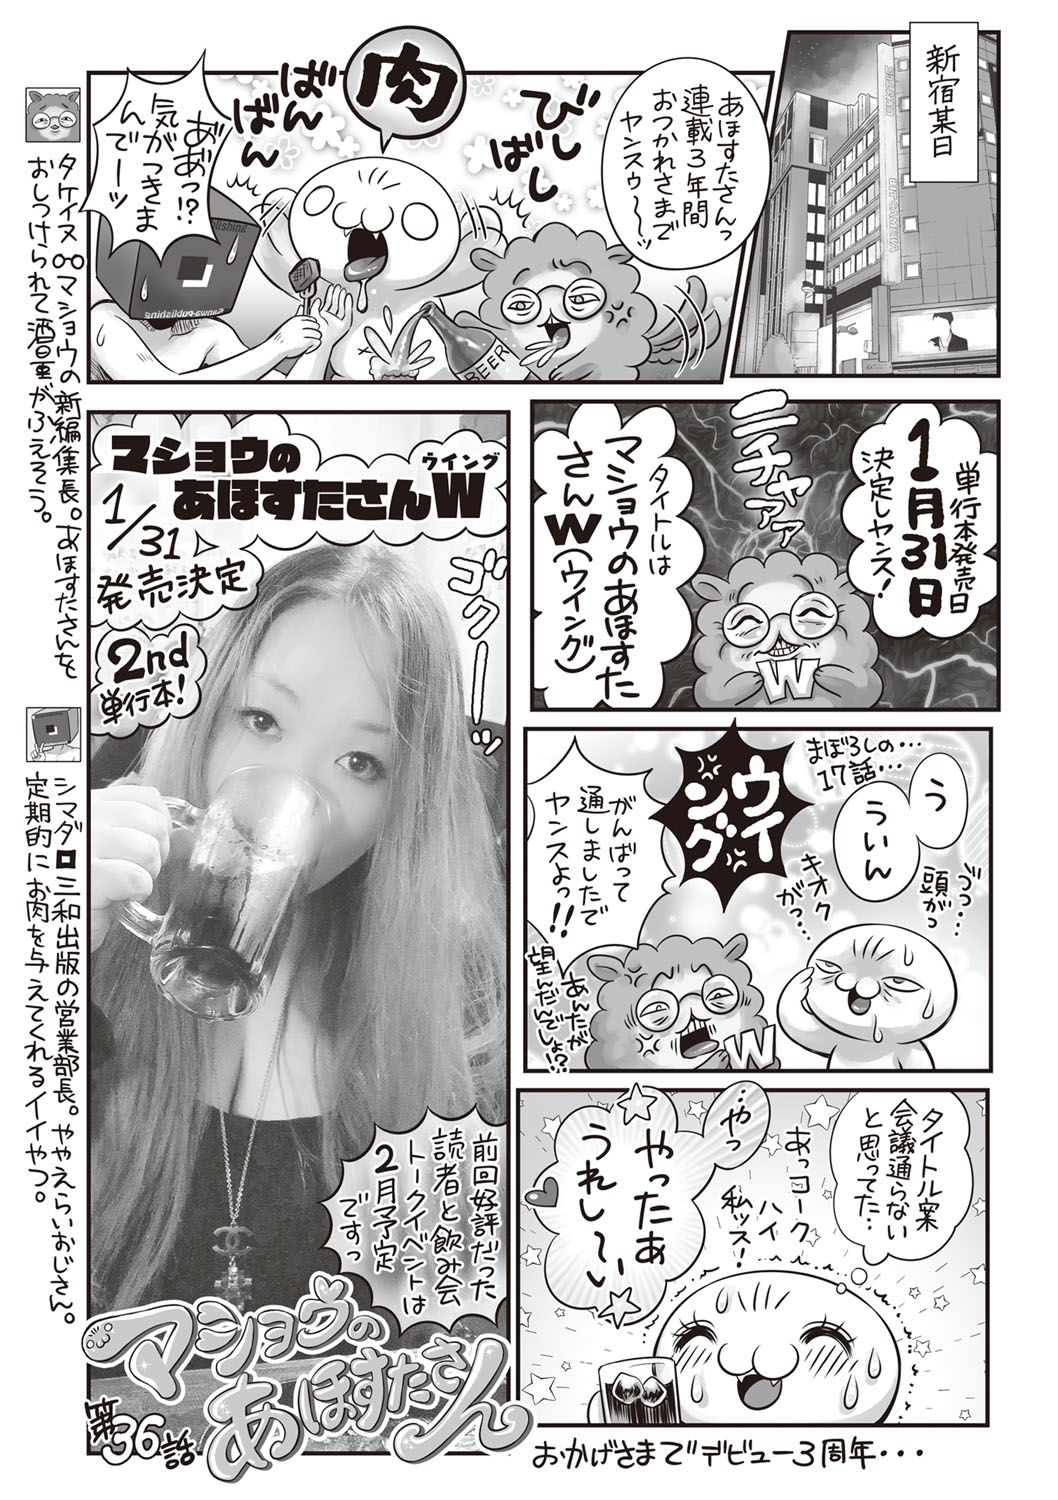 新宿某日
あほすたさんっ
連載3年間
おつかれさまで
ヤンスゥ〜〜ッ
びし
ばし
肉
ばん
ばん
あ゛ぁっ!?
気がつきま
んでーッ
BEER
単行本発売日
1月31日
決定しヤンス!
ニチャアァァ
タイトルは
マショウのあほすた
さんW(ウイング)
W
まぼろしの…
17話…
う
ういん
頭がっ
キオク
がっ…
ウイ
ング
がんばって
通しましたで
ヤンスよっ!!
あんたが
望んだんでしょ!?
W
タイトル案
会議通らない
と思ってた…
あっコーク
ハイ
私ッス!
…やっ
やったぁ
うれし〜い
おかげさまでデビュー3周年・・・
マショウの
あほすたさんW
ウイング
1/31
発売決定
2nd
単行本!
ゴクーーッ
前回好評だった
読者と飲み会
トークイベントは
2月予定
ですっ
マショウの
あほすたさん
第36話
タケイヌ マショウの新編集長。あほすたさんを
おしつけられて酒量がふえそう。
シマダ 三和出版の営業部長。ややえらいおじさん。
定期的にお肉を与えてくれるイイやつ。